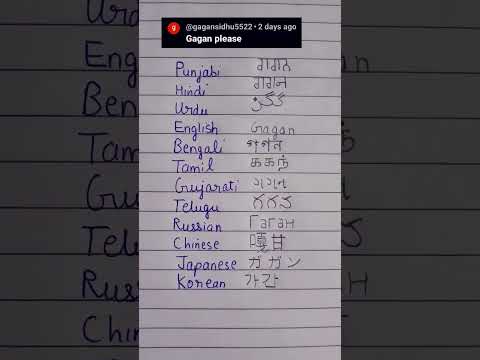 @gagansidhu5522 • 2 days ago
Gagan please
Punjabi ਗਗਨ
Hindi गगन
Urdu گگن
English Gagan
Bengali গগন
Tamil ககந்
Gujarati ગગન
Telugu గగన
Russian Гаган
Chinese 嘎甘
Japanese ガガン
Korean 가간